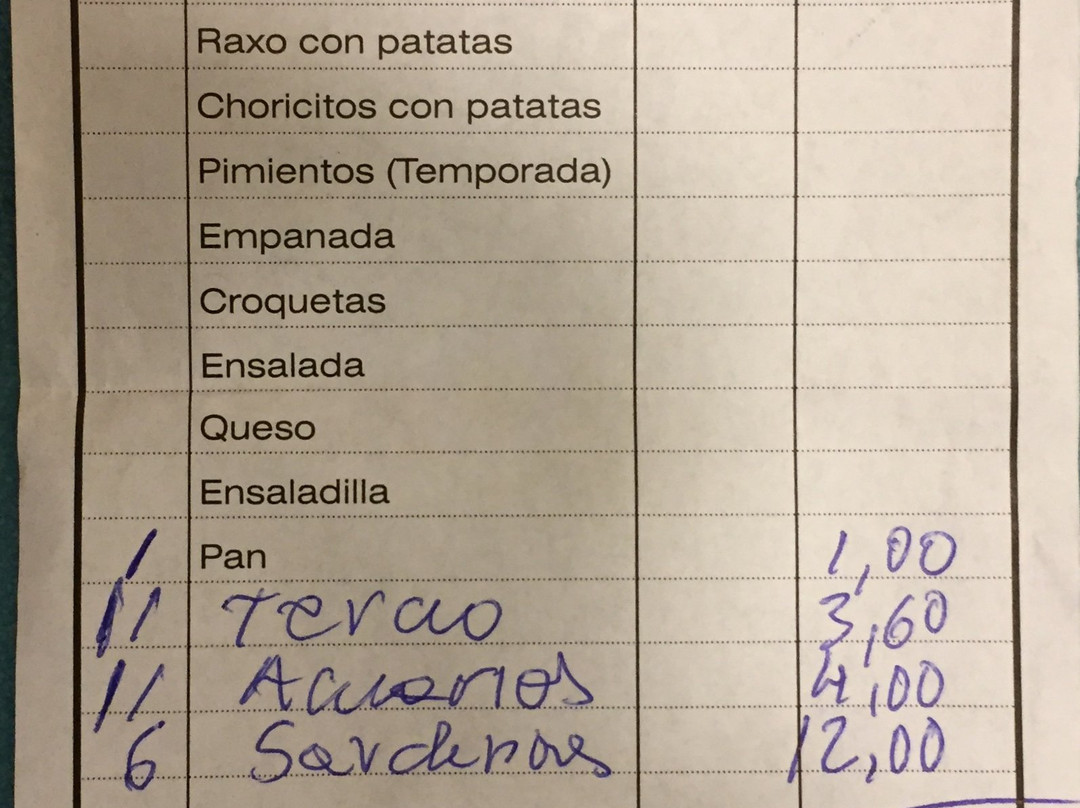 Raxo con patatas
Choricitos con patatas
Pimientos (Temporada)
Empanada
Croquetas
Ensalada
Queso
Ensaladilla
1 Pan 1,00
11 Tercio 3,60
11 Acuarios 4,00
6 Sardenas 12,00